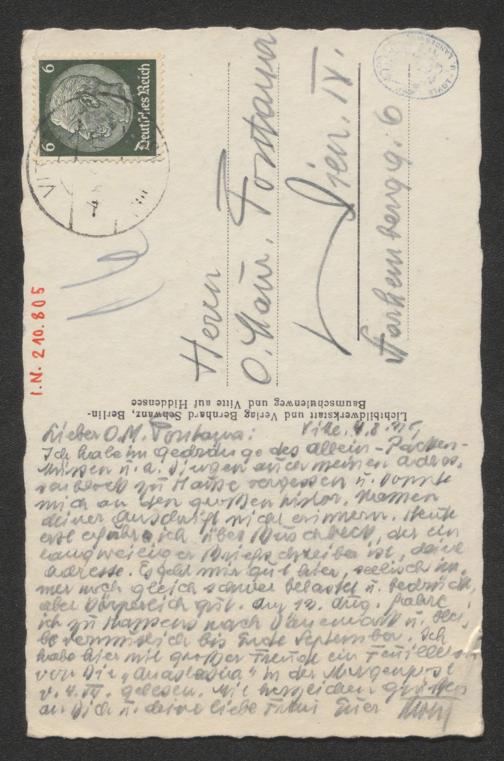 Deutsches Reich
6 6
I.N. 210.805
Herrn
O. Maur. Fontana
Wien. IV.
Starhembergg. 6
Lichtbildwerkstatt und Verlag Bernhard Schwanz, Berlin-
Baumschulenweg und Vitte auf Hiddensee
Lieber O. M. Fontana: Vitte, 4.8.
Ich habe im Gedränge des allein-Packen-
Müssens u. a. Dingen auch meinen Adres-
senblock zu Hause vergessen u. konnte
mich an den großen histor. Namen
deiner Anschrift nicht erinnern. Heute
erst erfahre ich über, der ein
langweiliger Briefschreiber ist, deine
Adresse. Es geht mir gut hier, seelisch im-
mer noch gleich schwer belastet u. bedrückt,
aber körperlich gut. Am 12. Aug. fahre
ich zu nach Dänemark u. blei-
be vermutlich bis Ende September. Ich
habe hier mit großer Freude ein Feuilleton
von Dir „Anastasia" in der Morgenpost
v. 4. gelesen. Mit herzlichen Grüßen
an Dich u. deine liebe Frau Euer